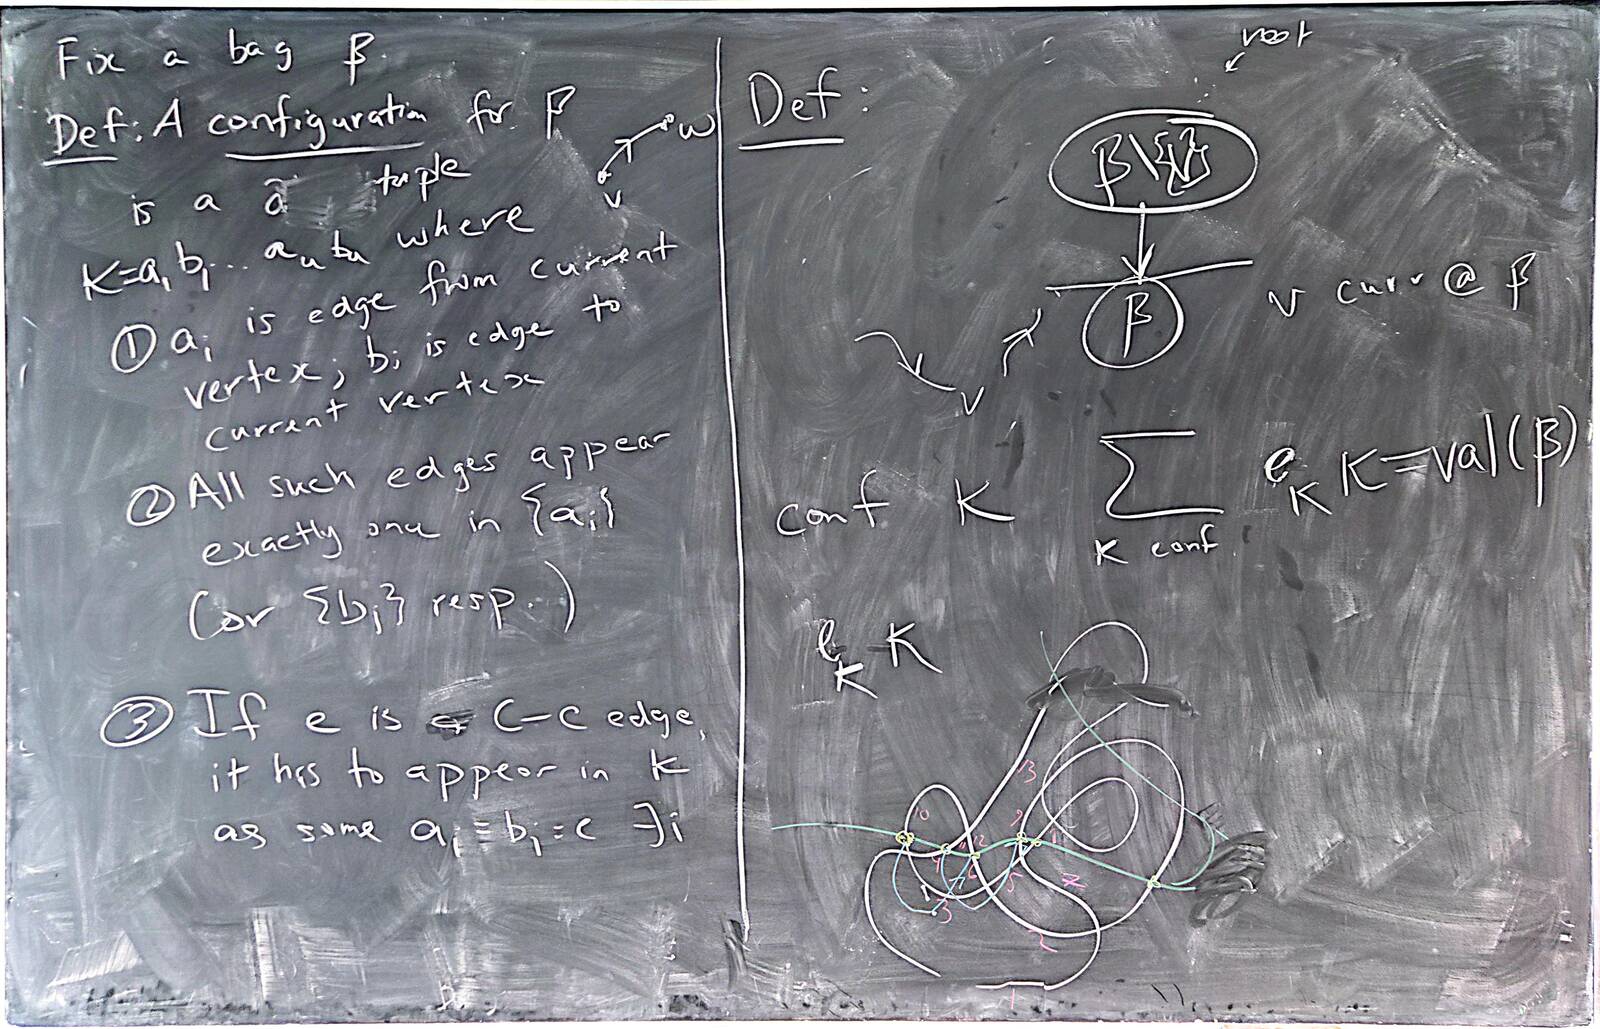 Fix a bag β.
Def: A configuration for β
is a tuple
K=a₁b₁...aₙbₙ where
① aᵢ is edge from current
vertex; bᵢ is edge to
current vertex
② All such edges appear
exactly one in {aᵢ}
(or {bᵢ} resp.)
③ If e is C-C edge,
it has to appear in K
as some aᵢ=bᵢ=e ∃i
w
v
Def:
root
β\{v}
β
v curr @ β
v
conf K
∑ e_K K=val(β)
K conf
e_K K